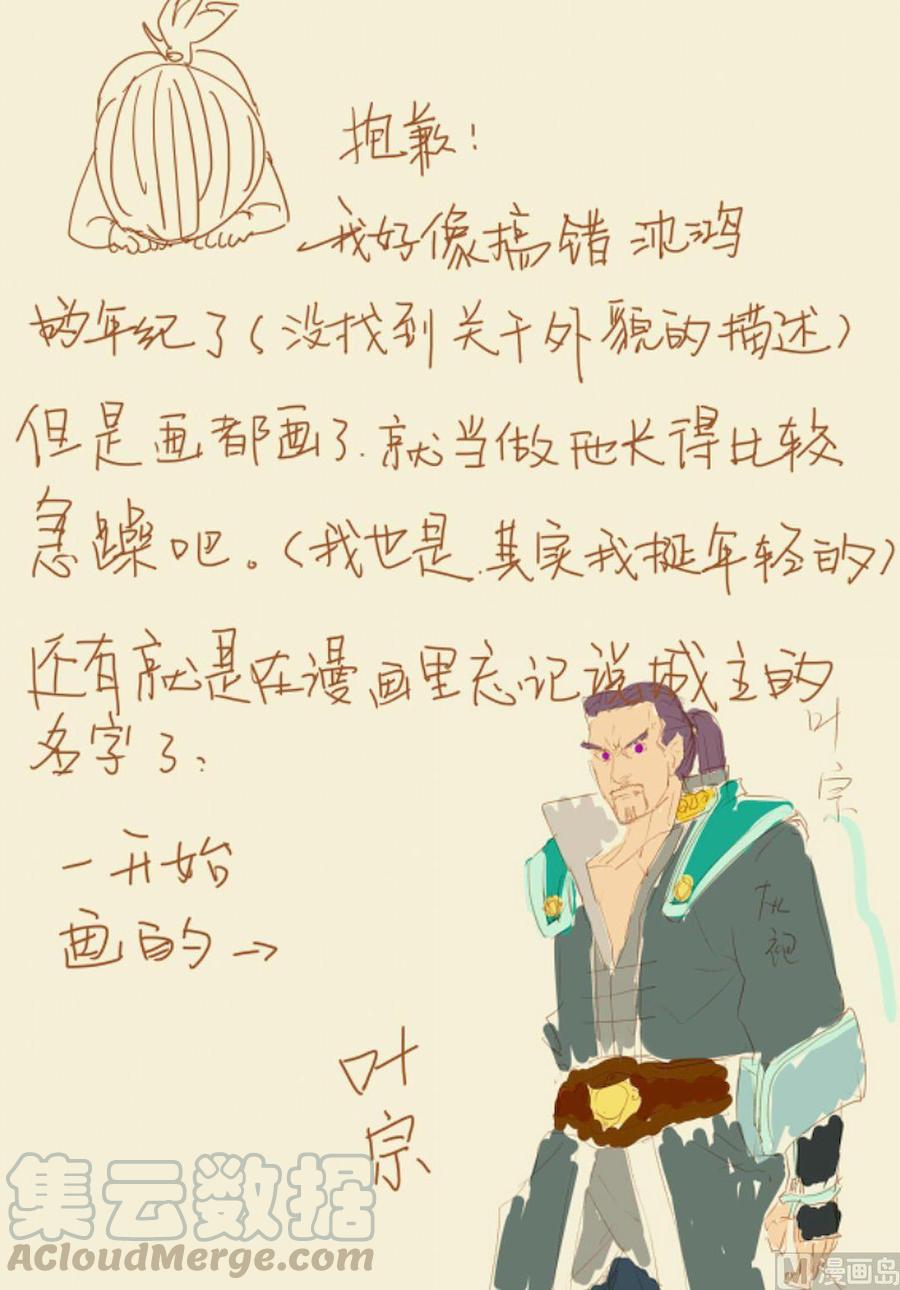 抱歉：
我好像搞错沈鸿
的年纪了（没找到关于外貌的描述）
但是画都画了.就当做他长得比较
急躁吧。（我也是.其实我挺年轻的）
还有就是在漫画里忘记说城主的
名字了：
叶宗
一开始
画的→
灰袍
叶宗
集云数据
ACloudMerge.com
漫画岛